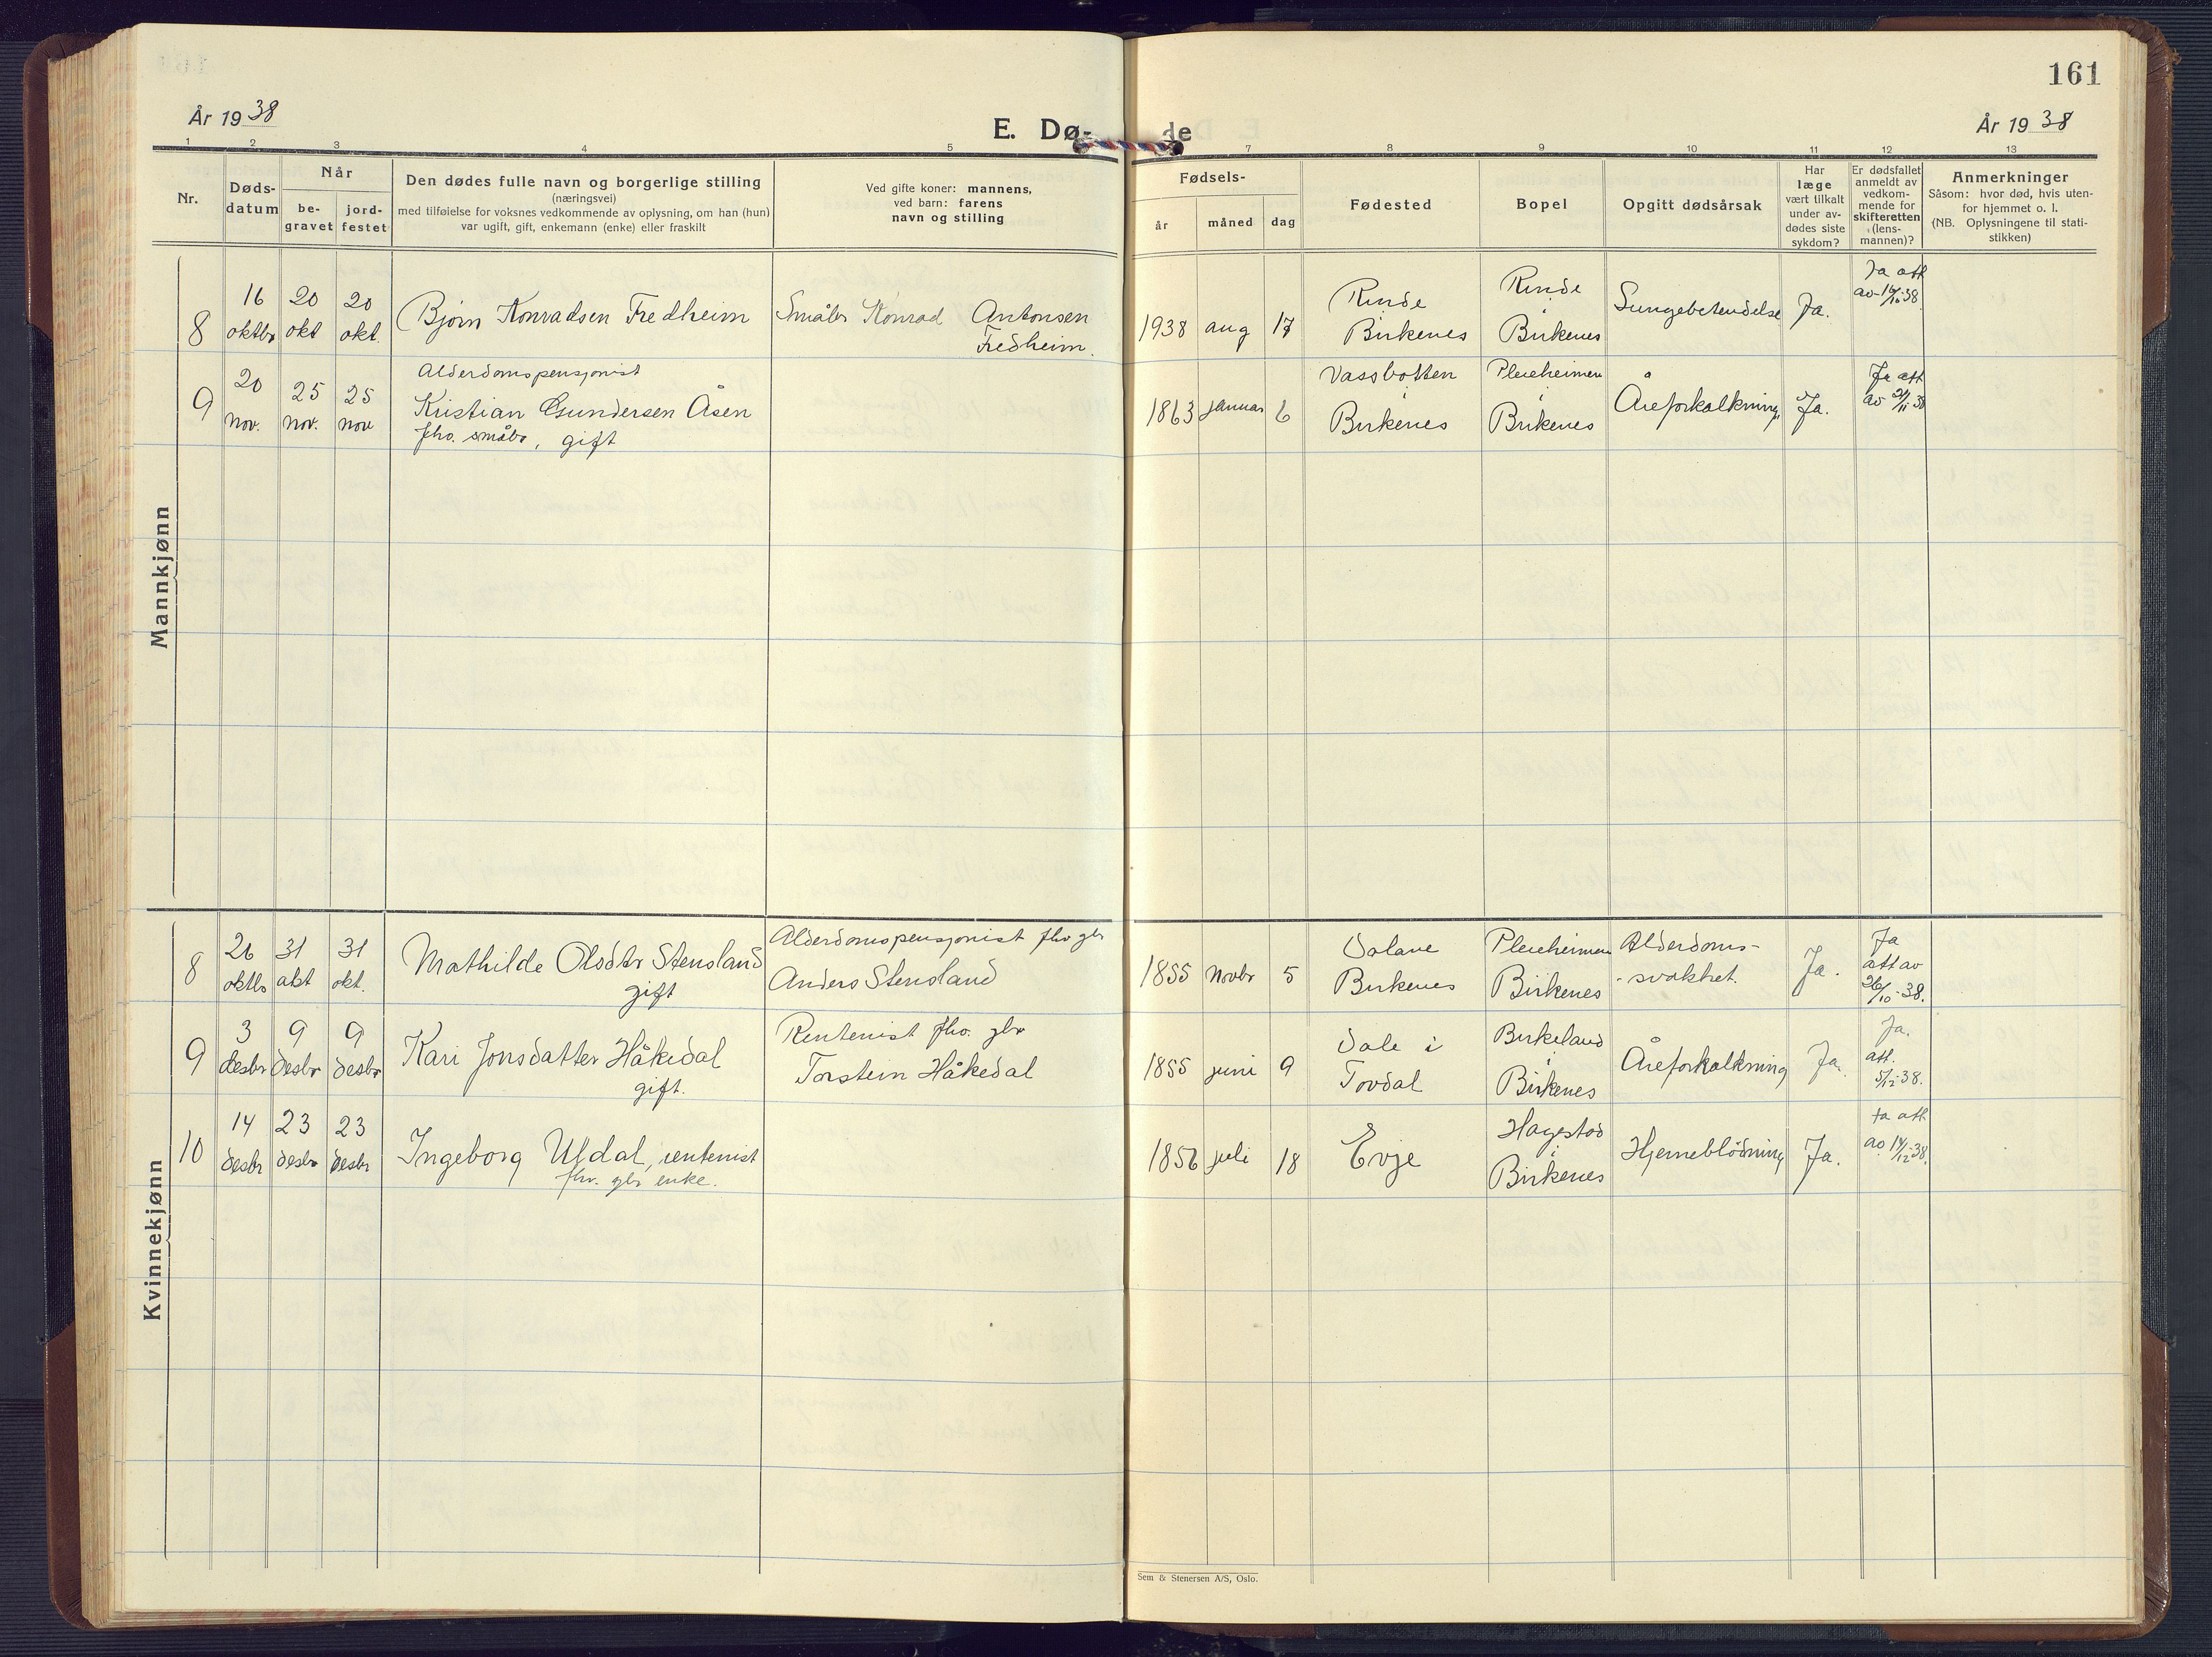 161
År 1938
E. Døde
År 1938
1 2 3 4 5 7 8 9 10 11 12 13
Nr.
Døds-
datum
Når
be-
gravet
jord-
festet
Den dødes fulle navn og borgerlige stilling
(næringsvei)
med tilføielse for voksnes vedkommende av oplysning, om han (hun)
var ugift, gift, enkemann (enke) eller fraskilt
Ved gifte koner: mannens,
ved barn: farens
navn og stilling
Fødsels-
år måned dag
Fødested
Bopel
Opgitt dødsårsak
Har
læge
vært tilkalt
under av-
dødes siste
sykdom?
Er dødsfallet
anmeldt av
vedkom-
mende for
skifteretten
(lens-
mannen)?
Anmerkninger
Såsom: hvor død, hvis uten-
for hjemmet o. l.
(NB. Oplysningene til stati-
stikken)
Mannkjønn
8
16
oktbr
20
okt
20
okt.
Bjørn Konradsen Fredheim
Småbr Konrad Antonsen
Fredheim.
1938 aug 17
Rinde
i
Birkenes
Rinde
i
Birkenes
Lungebetendelse
Ja.
Ja att
av 16/10-38
9
20
nov.
25
nov.
25
nov
Alderdomspensjonist
Kristian Gundersen Åsen
fhv. småbr, gift
1863 januar 6
Vassbotten
i
Birkenes
Pleieheimen
i
Birkenes
Åreforkalkning
Ja.
Ja att
av 21/11 38
Kvinnekjønn
8
26
oktbr
31
okt
31
okt.
Mathilde Olsdtr Stensland
gift
Alderdomspensjonist fhv gbr
Anders Stensland
1855 Novbr 5
Dalane
Birkenes
Pleieheimen
Birkenes
Alderdoms-
-svakhet.
Ja.
Ja
att av
26/10-38.
9
3
desbr
9
desbr
9
desbr
Kari Jonsdatter Håkedal
gift.
Rentenist fhv. gbr
Torstein Håkedal
1855 juni 9
Dale i
Tovdal
Birkeland
i
Birkenes
Åreforkalkning
Ja.
Ja.
att.
5/12-38.
10
14
desbr
23
desbr
23
desbr
Ingeborg Uldal, rentenist
fhv. gbr enke.
1856 juli 18
Evje
Hagestad
i
Birkenes
Hjerneblødning
Ja.
Ja att
av 14/12-38.
Sem & Stenersen A/S, Oslo.